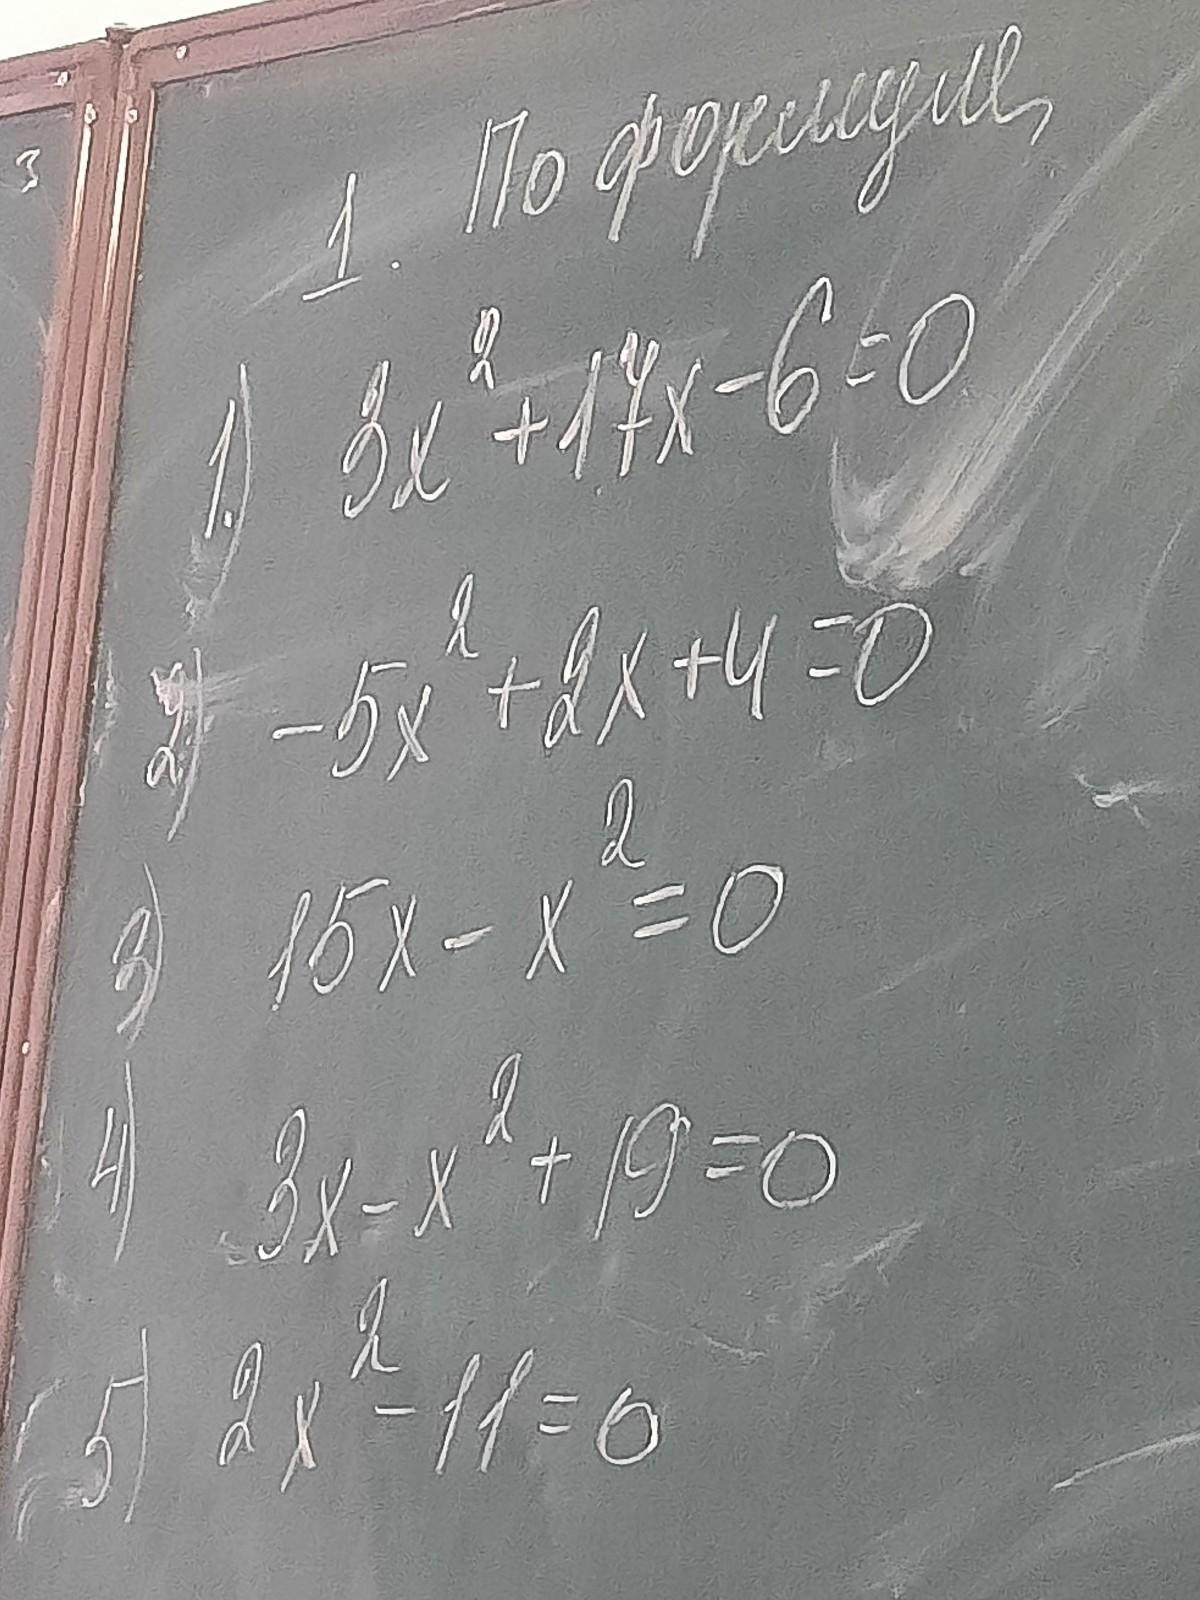 3
1. По формуле
1.) 3x² + 17x - 6 = 0
2) -5x² + 2x + 4 = 0
3) 15x - x² = 0
4) 3x - x² + 19 = 0
5) 2x² - 11 = 0